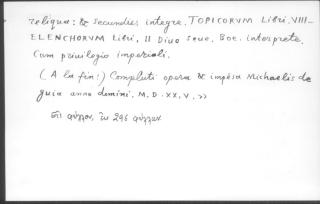 reliqua: & secundus integre. TOPICORVM Libri. VIII-
ELENCHORVM Libri. II Divo Seve. Boe. interprete.
Cum privilegio imperiali.
(A la fin:) Compluti opera & impesa Michaelis de
guia anno domini. M. D. XX. V. »
296